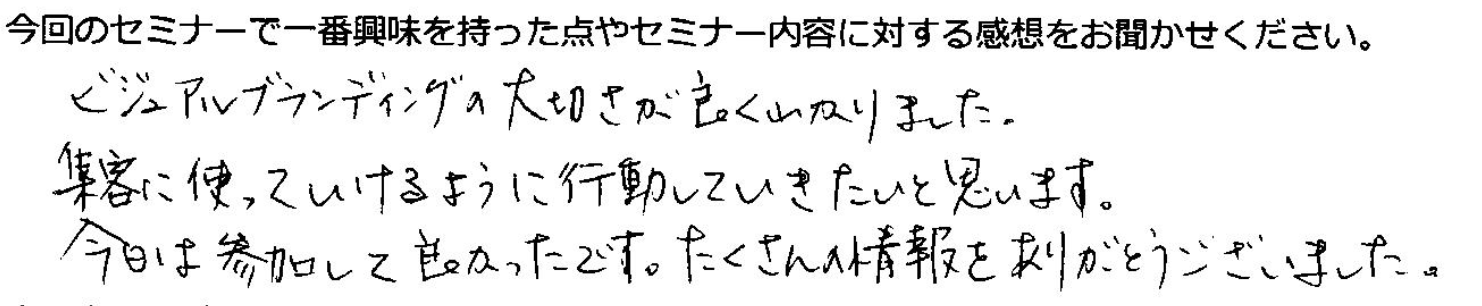 今回のセミナーで一番興味を持った点やセミナー内容に対する感想をお聞かせください。
ビジュアルブランディングの大切さが良くわかりました。
集客に使っていけるように行動していきたいと思います。
今日は参加して良かったです。たくさんの情報をありがとうございました。